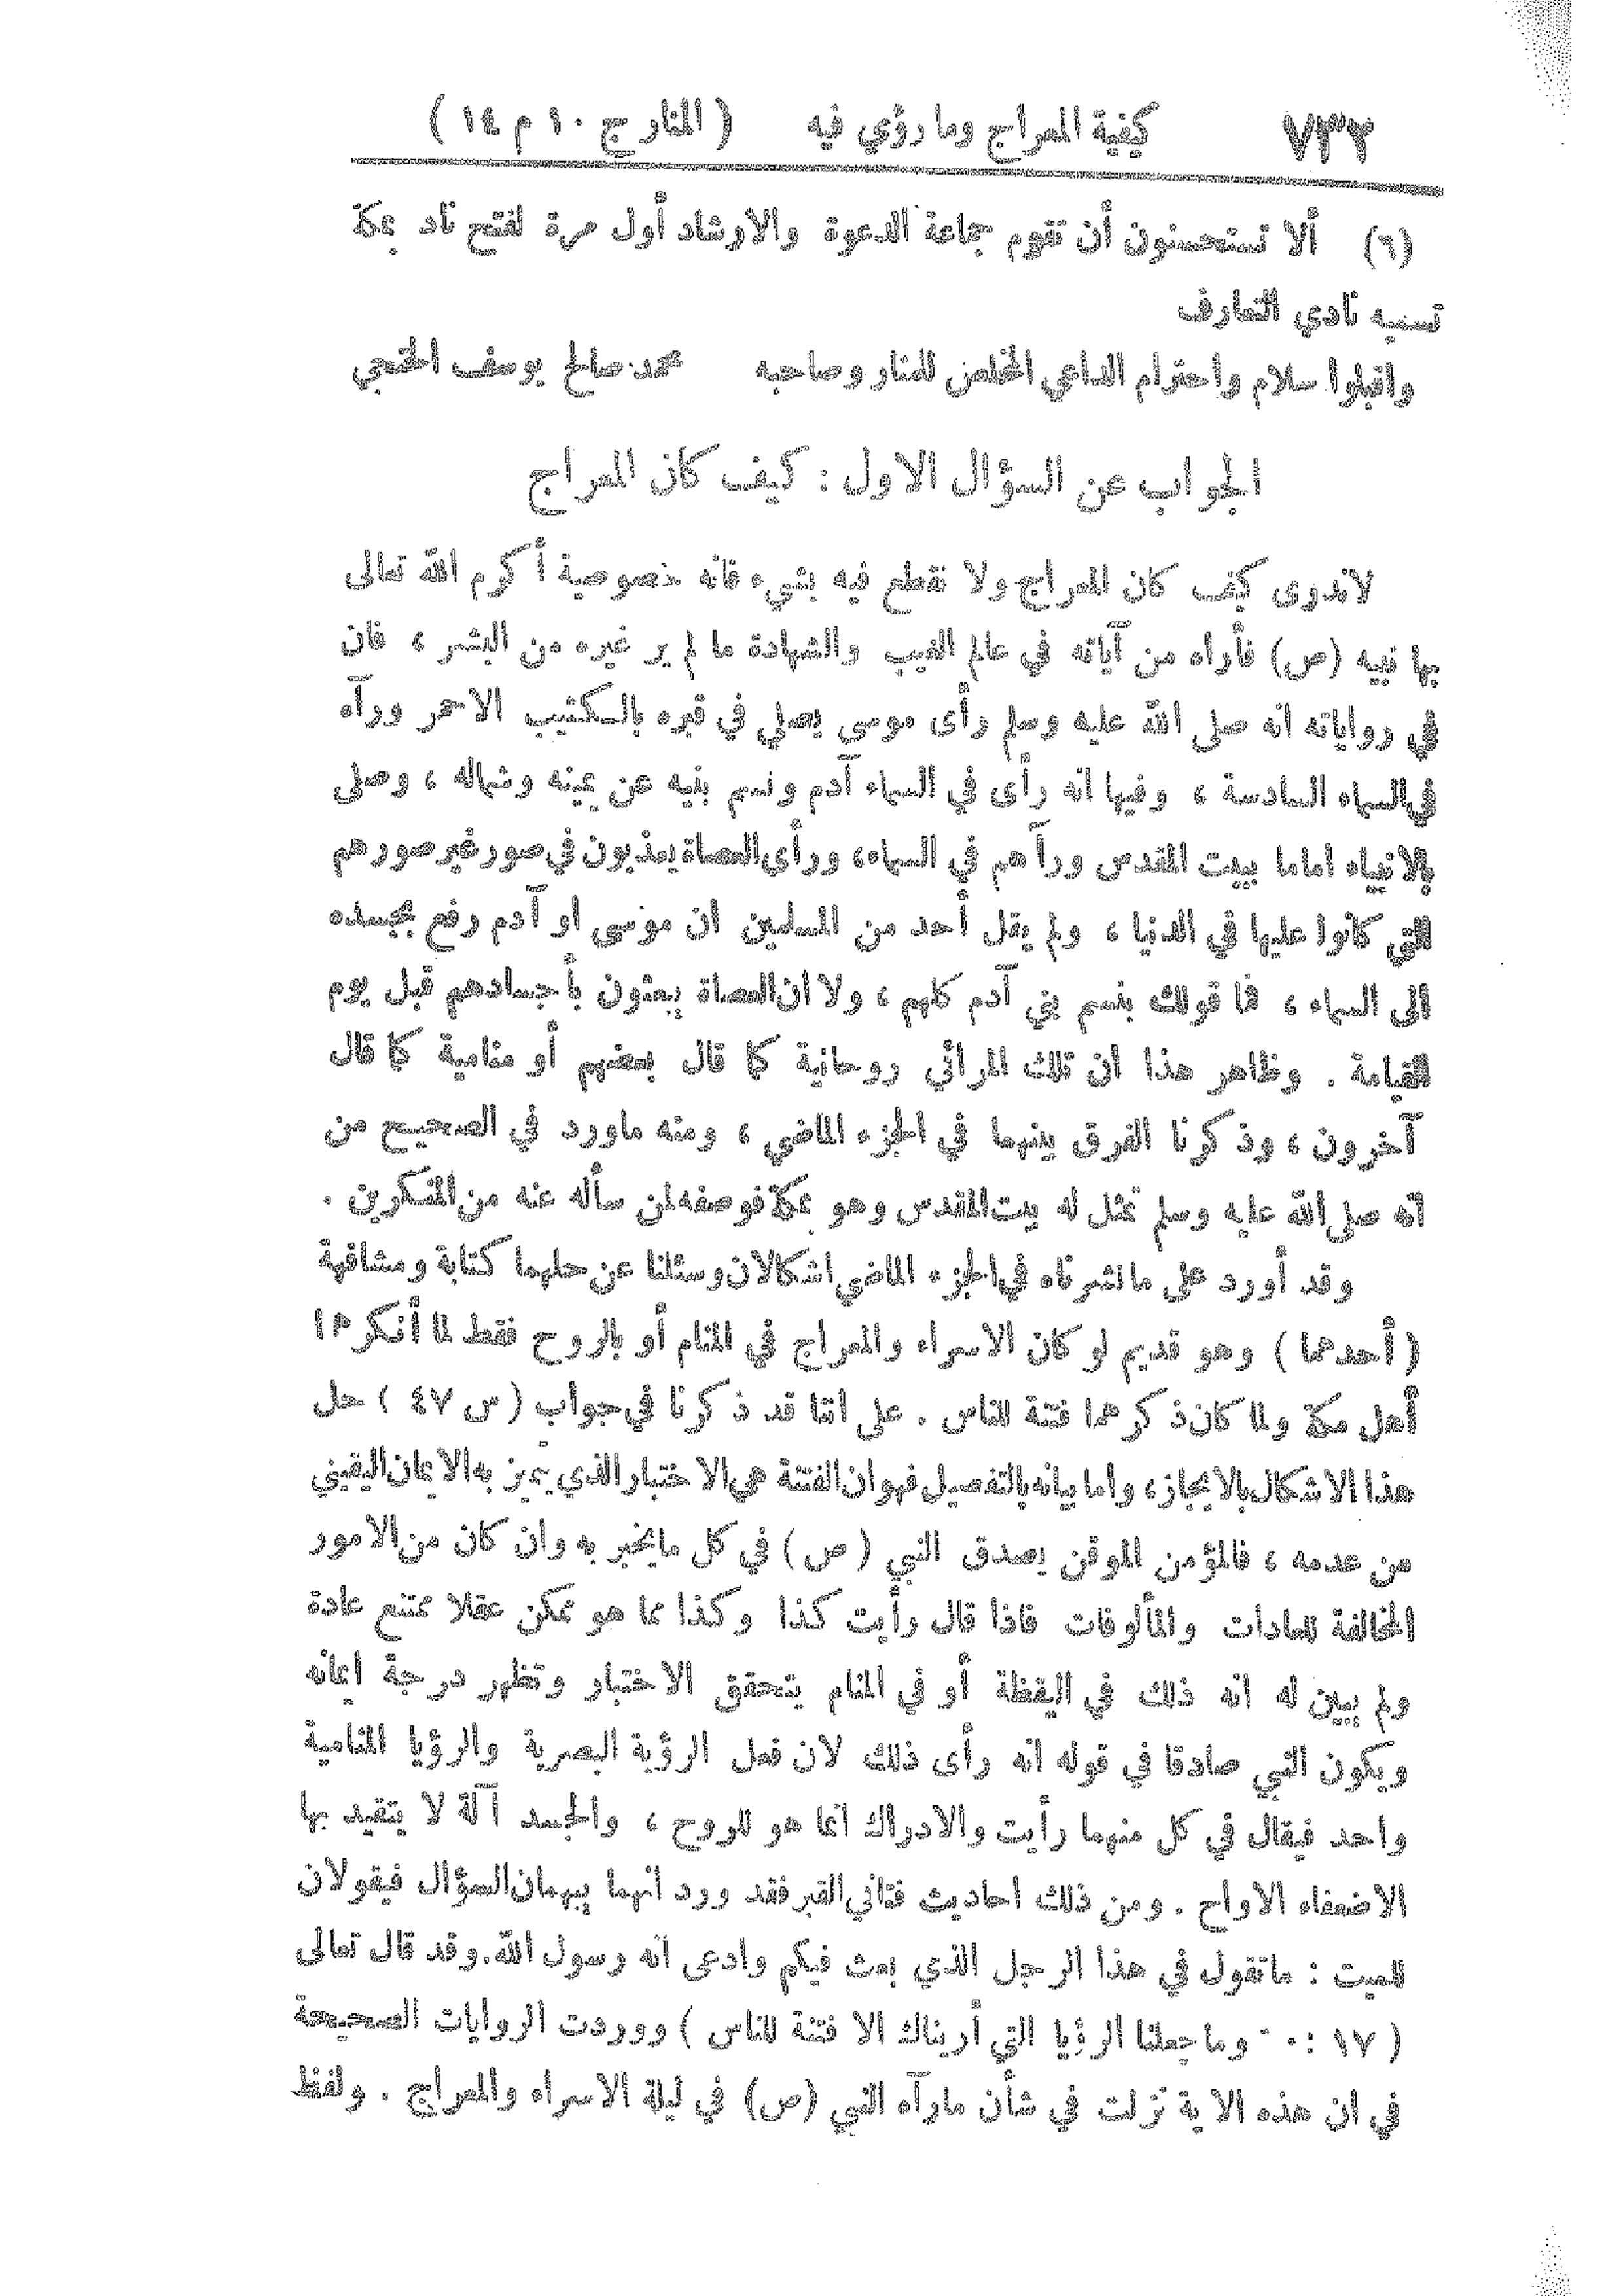 ٧٣٢ كيفية المعراج وما رؤي فيه ( المنار ج ١٠ م ١٤ )
(٦) ألا تستحسنون أن تقوم جماعة الدعوة والارشاد أول مرة لفتح ناد بمكة
تسميه نادي التعارف
واقبلوا سلام واحترام الداعي المخلص للمنار وصاحبه محمد صالح يوسف الخنجي
الجواب عن السؤال الاول : كيف كان المعراج
لاندري كيف كان المعراج ولا نقطع فيه بشيء فانه خصوصية أكرم الله تعالى
بها نبيه (ص) فأراه من آياته في عالم الغيب والشهادة ما لم ير غيره من البشر ، فان
في رواياته انه صلى الله عليه وسلم رأى موسى يصلي في قبره بالكثيب الاحمر ورآه
في السماء السادسة ، وفيها انه رأى في السماء آدم ونسم بنيه عن يمينه وشماله ، وصلى
بالانبياء اماما ببيت المقدس ورآهم في السماء، ورأى العصاة يعذبون في صور غير صورهم
التي كانوا عليها في الدنيا ، ولم يقل أحد من المسلمين ان موسى او آدم رفع بجسده
الى السماء ، فما قولك بنسم بني آدم كلهم ، ولا ان العصاة يبعثون بأجسادهم قبل يوم
القيامة . وظاهر هذا ان تلك المرائي روحانية كما قال بعضهم أو منامية كما قال
آخرون ، وذكرنا الفرق بينهما في الجزء الماضي ، ومنه ماورد في الصحيح من
انه صلى الله عليه وسلم تمثل له بيت المقدس وهو بمكة فوصفه لمن سأله عنه من المنكرين .
وقد أورد على مانشرناه في الجزء الماضي اشكالان وسئلنا عن حلهما كتابة ومشافهة
( أحدهما ) وهو قديم لو كان الاسراء والمعراج في المنام أو بالروح فقط لما أنكرهما
أهل مكة ولما كان ذكرهما فتنة للناس . على اننا قد ذكرنا في جواب ( س ٤٧ ) حل
هذا الاشكال بالايجاز، وأما بيانه بالتفصيل فهو ان الفتنة هي الاختبار الذي يميز به الايمان اليقيني
من عدمه ، فالمؤمن الموقن يصدق النبي (ص) في كل مايخبر به وان كان من الامور
المخالفة للعادات والمألوفات فاذا قال رأيت كذا وكذا مما هو ممكن عقلا ممتنع عادة
ولم يبين له انه ذلك في اليقظة أو في المنام يتحقق الاختبار وتظهر درجة ايمانه
ويكون النبي صادقا في قوله انه رأى ذلك لان فعل الرؤية البصرية والرؤيا المنامية
واحد فيقال في كل منهما رأيت والادراك انما هو للروح ، والجسد آلة لا يتقيد بها
الاضعفاء الاواح . ومن ذلك احاديث فتاني القبر فقد ورد انهما يبهمان السؤال فيقولان
للميت : ماتقول في هذا الرجل الذي بعث فيكم وادعى انه رسول الله. وقد قال تعالى
( ١٧ : وماجعلنا الرؤيا التي أريناك الا فتنة للناس ) ووردت الروايات الصحيحة
في ان هذه الاية نزلت في شأن مارآه النبي (ص) في ليلة الاسراء والمعراج . ولفظ